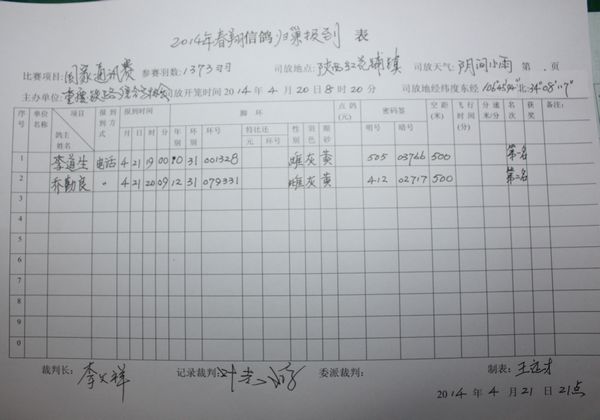 2014年春翔信鸽归巢报到 表
比赛项目:国家通讯赛 参赛羽数:1373羽 司放地点: 陕西红花铺镇 司放天气:阴间小雨 第 . 页
主办单位: 司放开笼时间2014年4月20日8时20分 司放地经纬度东经 106°45'94"北34°08'17"
序号 单位名称 项目 鸽主姓名 报到方式 报到时间 月 日 时 分 脚环 年别 环别 环号 特比还 元 环号 性别 羽色 眼砂 点鸽(元) 密码签 明号 暗号 空距(米) 飞行时间(分) 分速米/分 名次 获奖 备注:
1 李道生 电话 4 21 19 00 10 31 001328 雌 灰 黄 505 03766 500 第一名
2 乔勤良 〃 4 21 20 09 12 31 079331 雌 灰 黄 412 02717 500 第二名
3
4
5
6
7
8
9
0
裁判长: 记录裁判: 委派裁判: 制表:
2014年4月21日21点